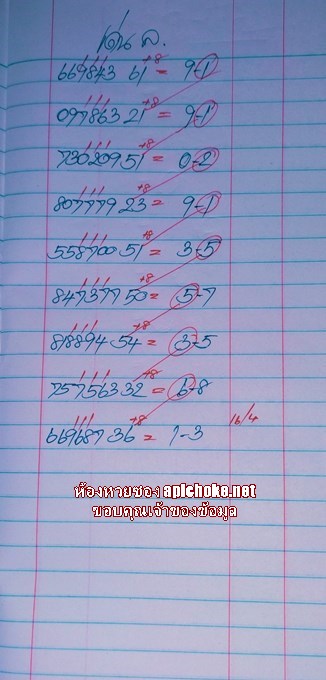 เด่น ล.
669843 61 +8 = 9-1
097863 21 +8 = 9-1
730209 51 +8 = 0-2
807779 23 +8 = 9-1
558700 51 +8 = 3-5
847377 50 +8 = 5-7
818894 54 +8 = 3-5
757563 32 +8 = 6-8
669687 36 +8 = 1-3
16/4
ห้องหวยซอง aplchoke.net
ขอบคุณเจ้าของข้อมูล